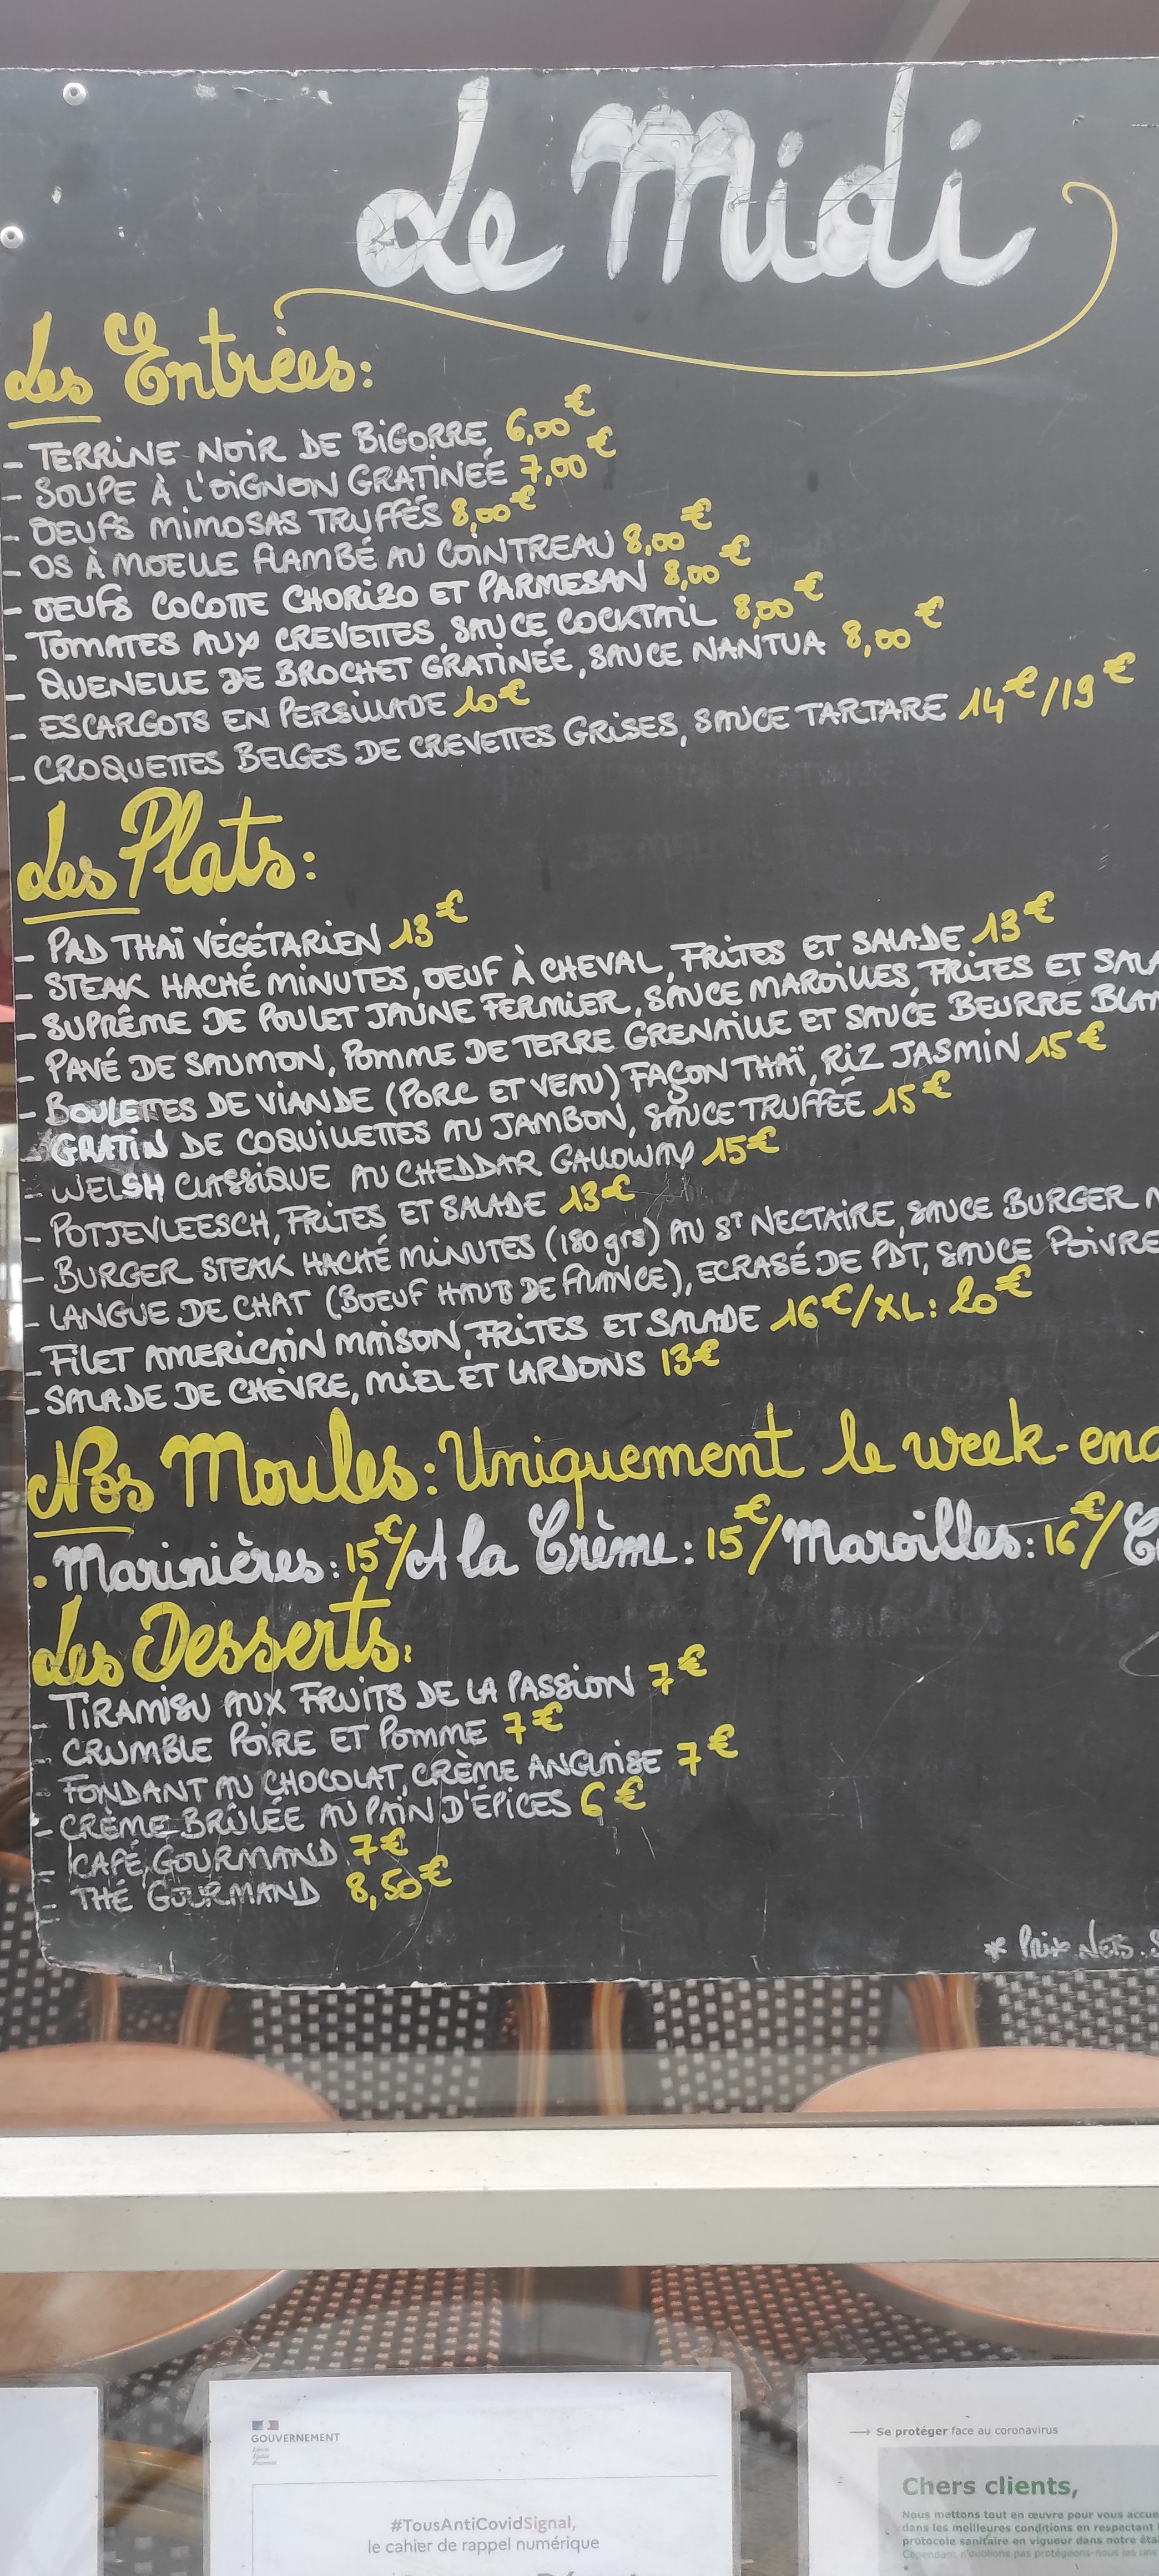 Le Midi
Les Entrées:
- TERRINE NOIR DE BIGORRE 6,00€
- SOUPE À L'OIGNON GRATINÉE 7,00€
- OEUFS MIMOSAS TRUFFÉS 8,00€
- OS À MOELLE FLAMBÉ AU COINTREAU 8,00€
- OEUFS COCOTTE CHORIZO ET PARMESAN 8,00€
- TOMATES AUX CREVETTES, SAUCE COCKTAIL 8,00€
- QUENELLE DE BROCHET GRATINÉE, SAUCE NANTUA 8,00€
- ESCARGOTS EN PERSILLADE 10€
- CROQUETTES BELGES DE CREVETTES GRISES, SAUCE TARTARE 14€/19€
Les Plats:
- PAD THAÏ VÉGÉTARIEN 13€
- STEAK HACHÉ MINUTES, OEUF À CHEVAL, FRITES ET SALADE 13€
- SUPRÊME DE POULET JAUNE FERMIER, SAUCE MAROILLES, FRITES ET SALA
- PAVÉ DE SAUMON, POMME DE TERRE GRENAILLE ET SAUCE BEURRE BLAN
- BOULETTES DE VIANDE (PORC ET VEAU) FAÇON THAÏ, RIZ JASMIN 15€
- GRATIN DE COQUILLETTES AU JAMBON, SAUCE TRUFFÉE 15€
- WELSH CLASSIQUE AU CHEDDAR GALLOWAY 15€
- POTJEVLEESCH, FRITES ET SALADE 13€
- BURGER STEAK HACHÉ MINUTES (180 grs) AU ST NECTAIRE, SAUCE BURGER
- LANGUE DE CHAT (BOEUF HAUTS DE FRANCE), ECRASÉ DE PDT, SAUCE POIVRE
- FILET AMERICAIN MAISON, FRITES ET SALADE 16€/XL: 20€
- SALADE DE CHÈVRE, MIEL ET LARDONS 13€
Nos Moules: Uniquement le week-end
• Marinières: 15€/A la Crème: 15€/Maroilles: 16€/
Les Desserts:
- TIRAMISU AUX FRUITS DE LA PASSION 7€
- CRUMBLE POIRE ET POMME 7€
- FONDANT AU CHOCOLAT, CRÈME ANGLAISE 7€
- CRÈME BRÛLÉE AU PAIN D'ÉPICES 6€
- CAFÉ GOURMAND 7€
- THÉ GOURMAND 8,50€
* Prix Nets.
GOUVERNEMENT
Liberté
Égalité
Fraternité
#TousAntiCovidSignal,
le cahier de rappel numérique
→ Se protéger face au coronavirus
Chers clients,
Nous mettons tout en œuvre pour vous accue
dans les meilleures conditions en respectant
protocole sanitaire en vigueur dans notre éta
Cependant n'oublions pas protégeons-nous les uns